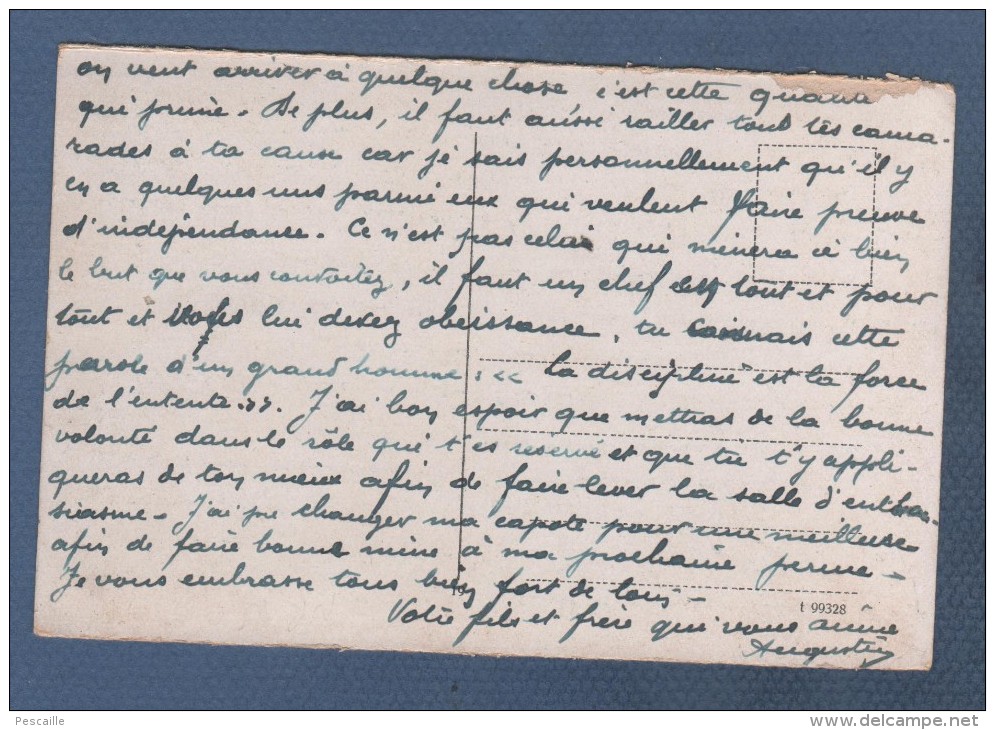 on veut arriver à quelque chose, c'est cette qualité
qui prime. De plus, il faut aussi railler tous tes cama-
rades à ta cause car je sais personnellement qu'il y
en a quelques uns parmi eux qui veulent faire preuve
d'indépendance. Ce n'est pas celui qui mènera à bien
le but que vous convoitez, il faut un chef et tout et pour
tout et vous lui devez obeissance, tu connais cette
parole d'un grand homme: << la discipline est la force
de l'entente >>. J'ai bon espoir que mettras de la bonne
volonté dans le rôle qui t'es réservé et que tu t'y appli-
queras de ton mieux afin de faire lever la salle d'enthou-
siasme. J'ai pu changer ma capote pour une meilleure
afin de faire bonne mine à ma prochaine perme.
Je vous embrasse tous bien fort de loin.
Votre fils et frère qui vous aime
Augustin
19
t 99328
Pescaille
www.delcampe.net